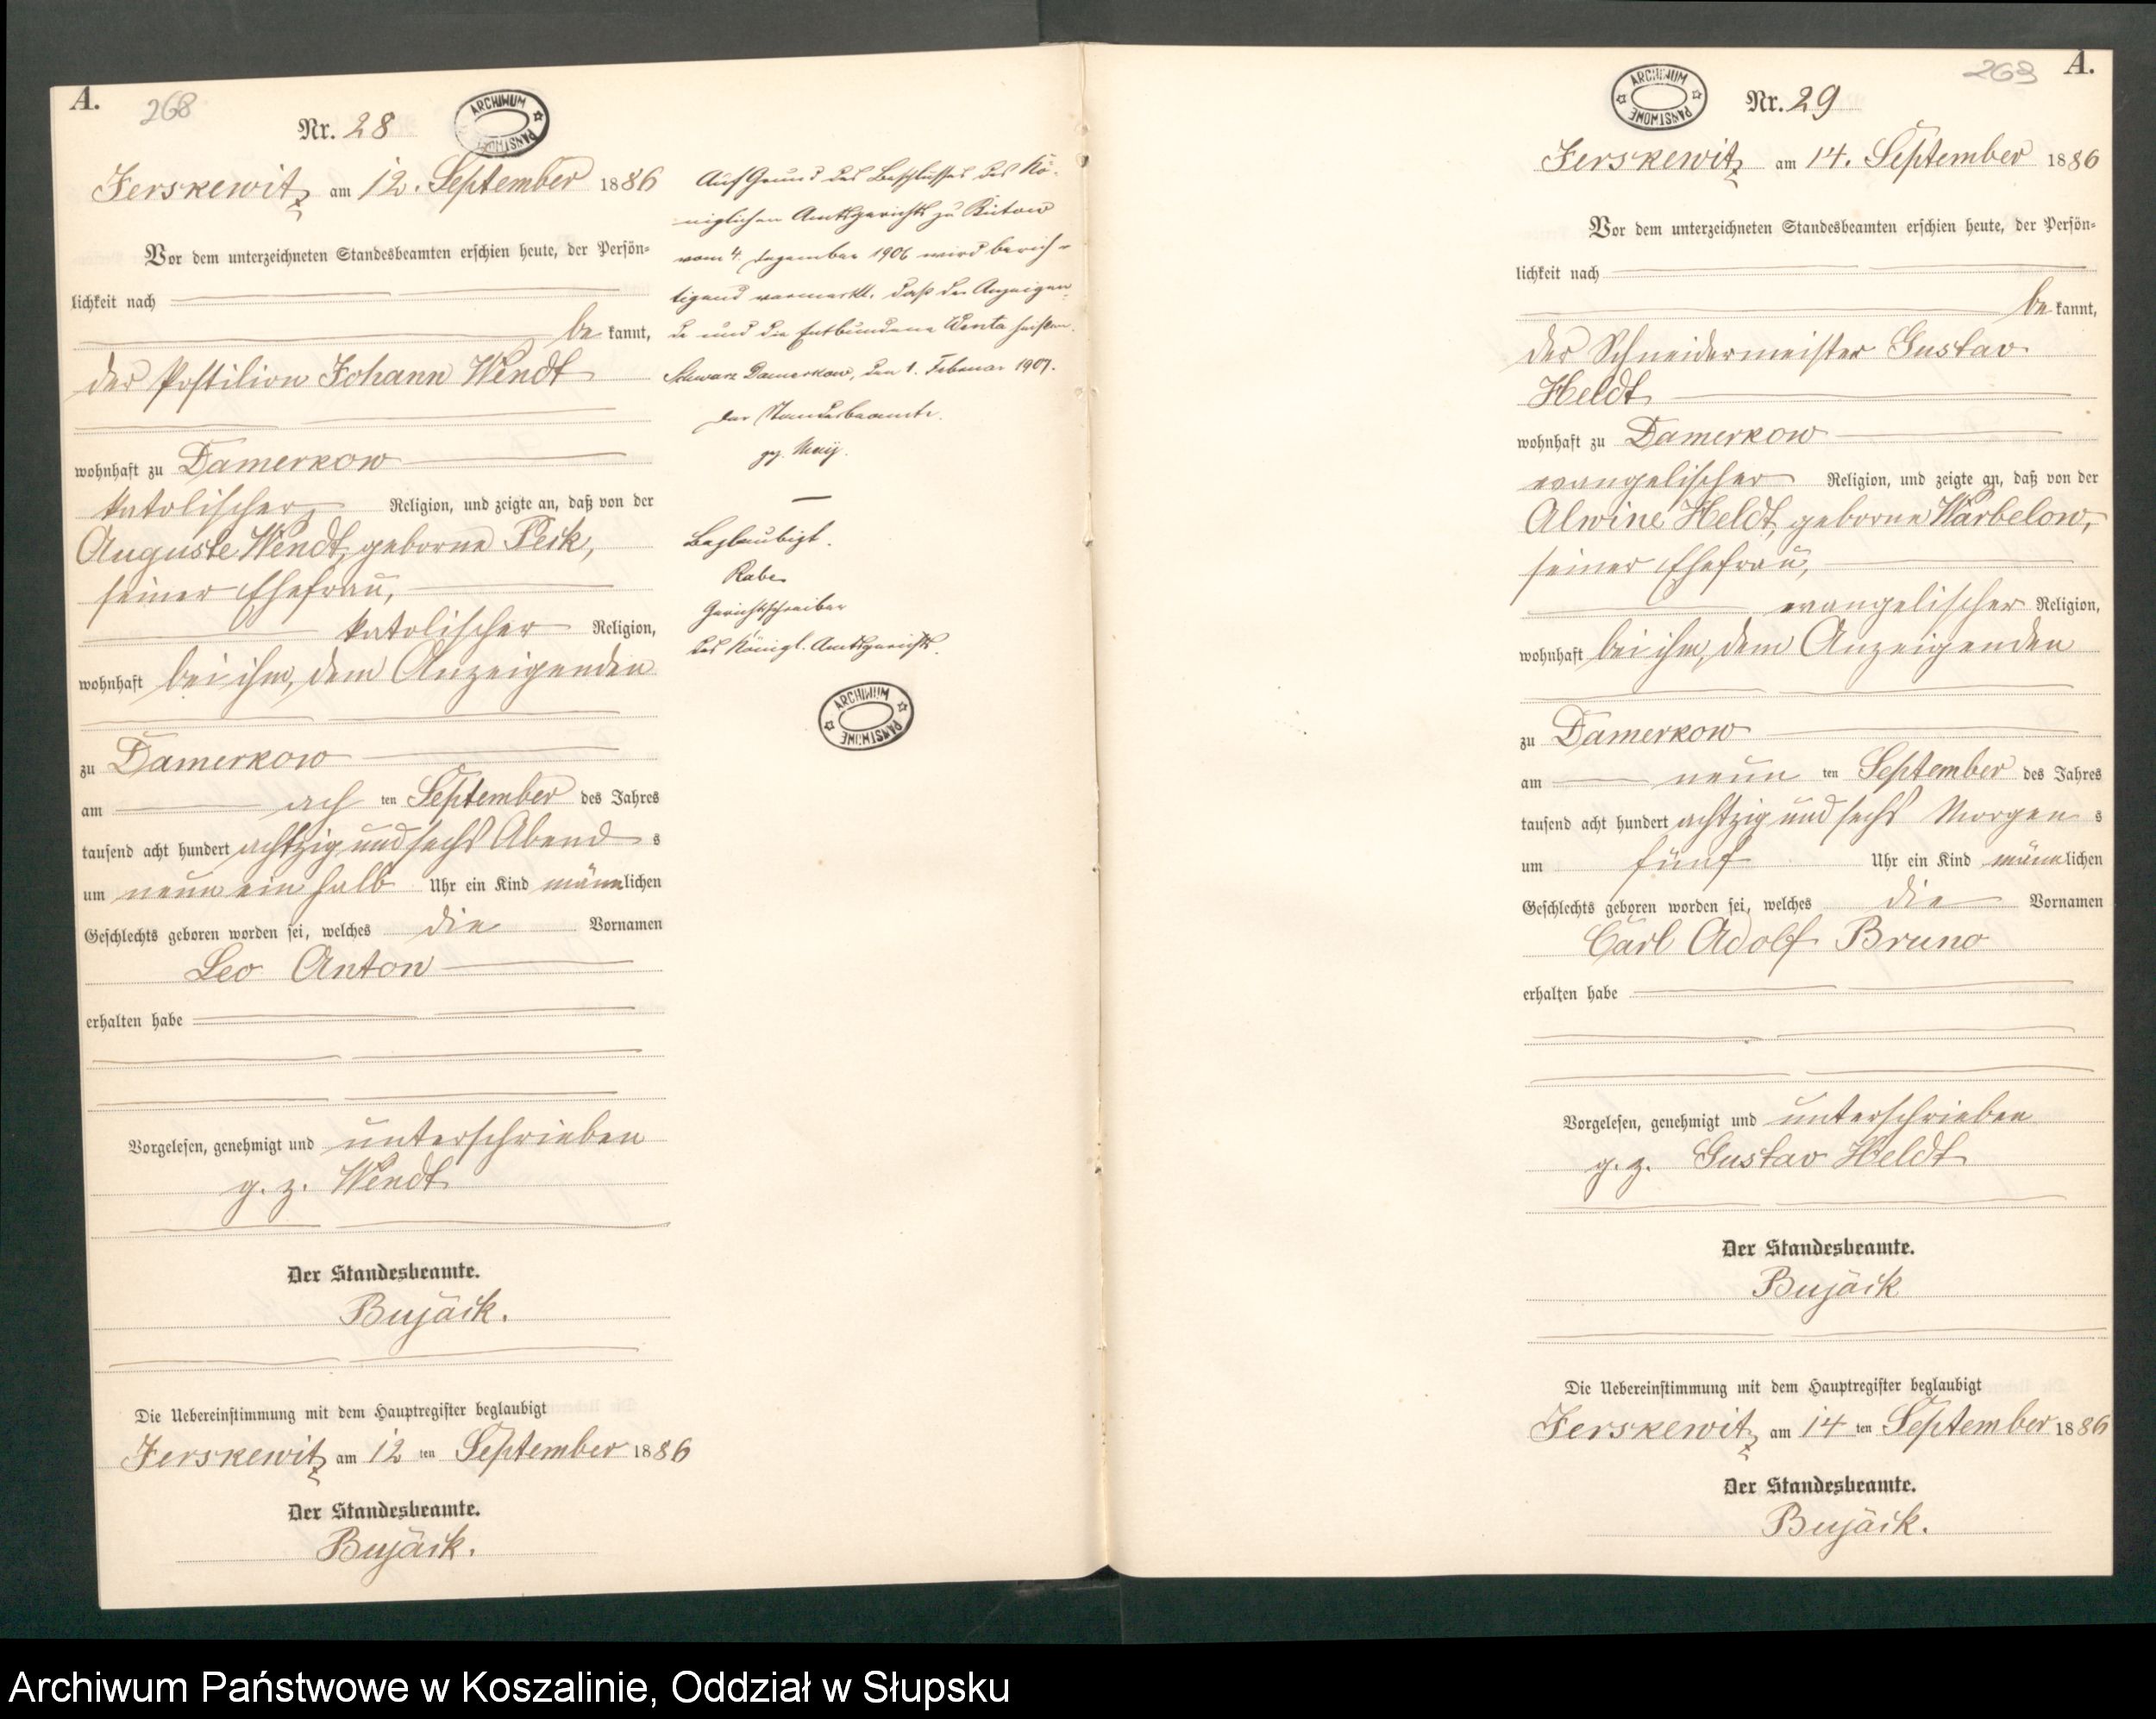 A.
268
Nr. 28
ARCHIWUM PAŃSTWOWE
Jerskewitz am 12. September 1886
Vor dem unterzeichneten Standesbeamten erschien heute, der Persön-
lichkeit nach
be kannt,
der Postilion Johann Wendt
wohnhaft zu Damerkow
katolischer Religion, und zeigte an, daß von der
Auguste Wendt, geborne Peik,
seiner Ehefrau,
katolischer Religion,
wohnhaft bei ihm, dem Anzeigenden
zu Damerkow
am ach ten September des Jahres
tausend acht hundert achtzig und sechs Abend s
um neun ein halb Uhr ein Kind männlichen
Geschlechts geboren worden sei, welches die Vornamen
Leo Anton
erhalten habe
Vorgelesen, genehmigt und unterschrieben
g. z. Wendt
Der Standesbeamte.
Bujäck.
Die Uebereinstimmung mit dem Hauptregister beglaubigt
Jerskewitz am 12 ten September 1886
Der Standesbeamte.
Bujäck.
Auf Grund des Beschlusses des Kö-
niglichen Amtsgerichts zu Bütow
vom 4. Dezember 1906 wird berich-
tigend vermerkt, daß der Anzeigen-
de und die Entbundene Wenta heißen.
Schwarz Damerkow, den 1. Februar 1907.
Der Standesbeamte.
gz.
Beglaubigt.
Rabe
Gerichtsschreiber
des Königl. Amtsgerichts.
ARCHIWUM PAŃSTWOWE
ARCHIWUM PAŃSTWOWE
Nr. 29
269
A.
Jerskewitz am 14. September 1886
Vor dem unterzeichneten Standesbeamten erschien heute, der Persön-
lichkeit nach
be kannt,
der Schneidermeister Gustav
Heldt
wohnhaft zu Damerkow
evangelischer Religion, und zeigte an, daß von der
Alwine Heldt, geborne Warbelow,
seiner Ehefrau,
evangelischer Religion,
wohnhaft bei ihm, dem Anzeigenden
zu Damerkow
am neun ten September des Jahres
tausend acht hundert achtzig und sechs Morgen s
um fünf Uhr ein Kind männlichen
Geschlechts geboren worden sei, welches die Vornamen
Carl Adolf Bruno
erhalten habe
Vorgelesen, genehmigt und unterschrieben
g. z. Gustav Heldt
Der Standesbeamte.
Bujäck
Die Uebereinstimmung mit dem Hauptregister beglaubigt
Jerskewitz am 14 ten September 1886
Der Standesbeamte.
Bujäck.
Archiwum Państwowe w Koszalinie, Oddział w Słupsku